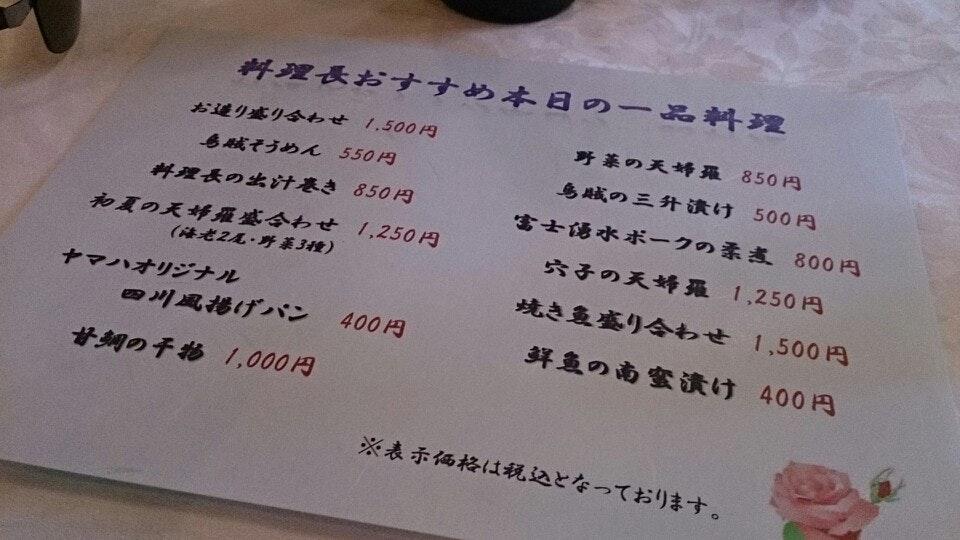 料理長おすすめ本日の一品料理
お造り盛り合わせ 1,500円
烏賊そうめん 550円
料理長の出汁巻き 850円
初夏の天婦羅盛合わせ 1,250円
(海老2尾・野菜3種)
ヤマハオリジナル
四川風揚げパン 400円
甘鯛の干物 1,000円
野菜の天婦羅 850円
烏賊の三升漬け 500円
富士湧水ポークの柔煮 800円
穴子の天婦羅 1,250円
焼き魚盛り合わせ 1,500円
鮮魚の南蛮漬け 400円
※表示価格は税込となっております。